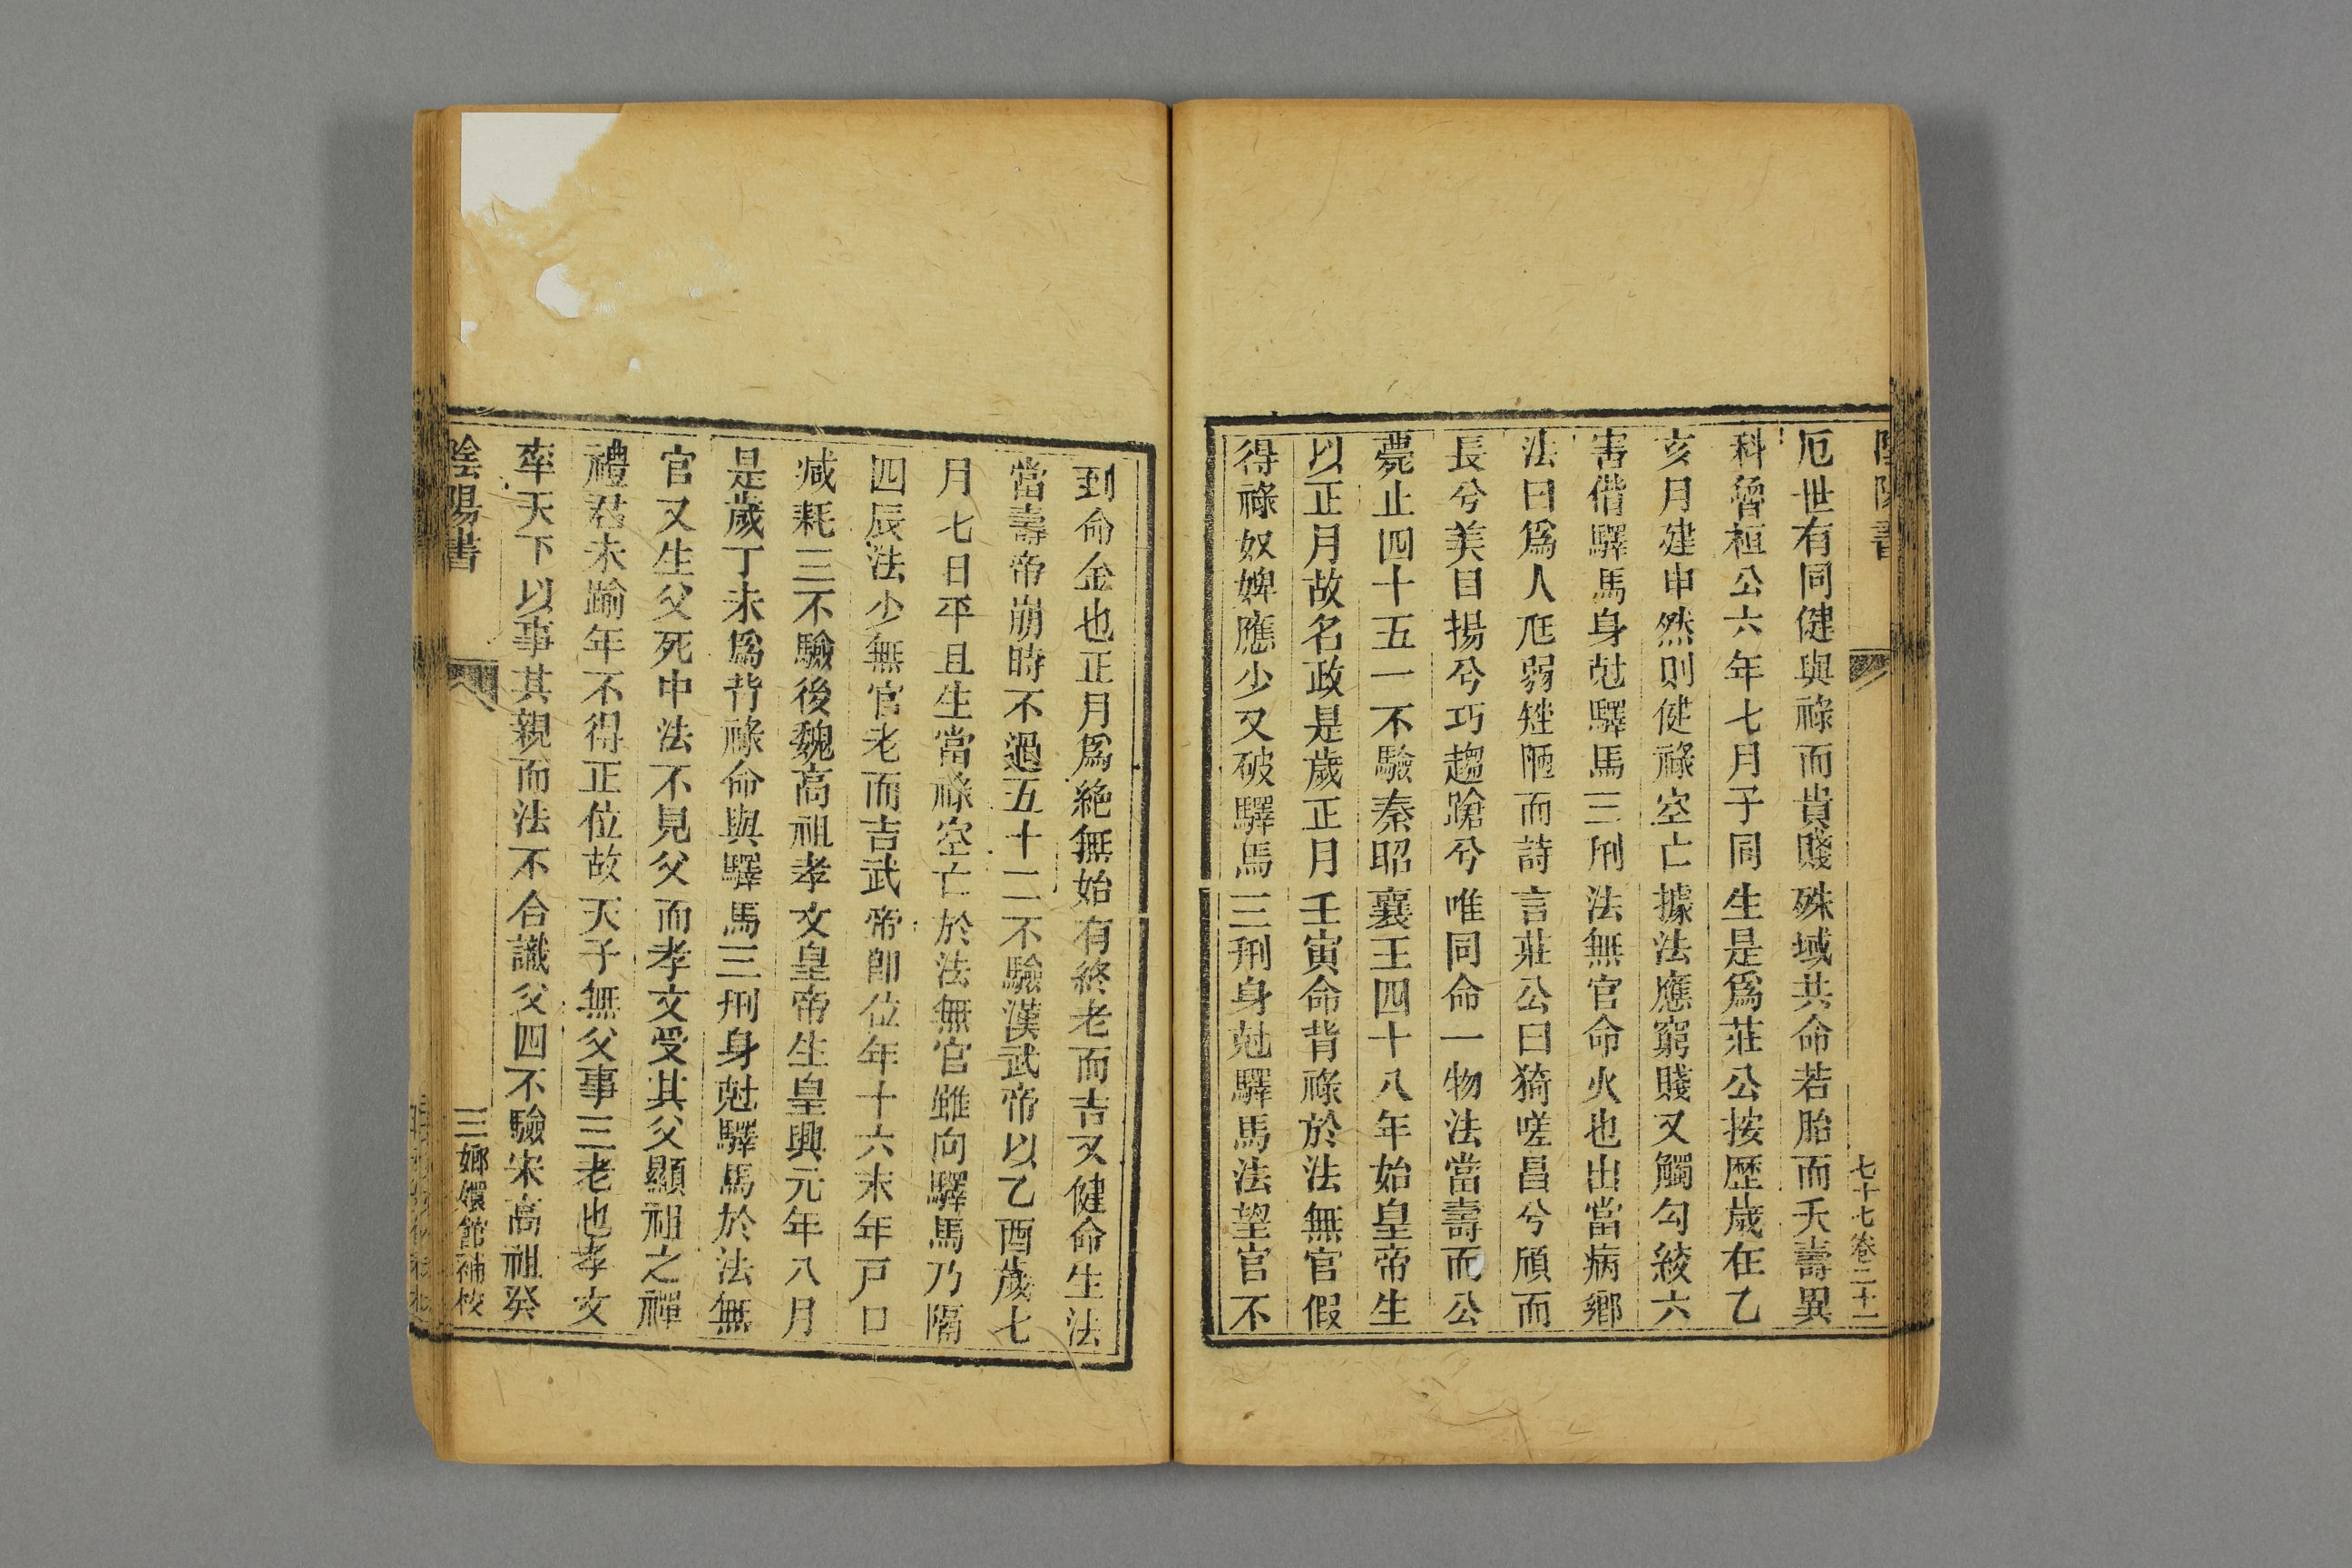 陰陽書
七十七卷二十一
厄世有同健與祿而貴賤殊域共命若胎而夭壽異
科魯桓公六年七月子同生是爲莊公按歷歲在乙
亥月建申然則健祿空亡據法應窮賤又觸勾絞六
害偕驛馬身尅驛馬三刑法無官命火也出當病鄉
法曰爲人尫弱矬陋而詩言莊公曰猗嗟昌兮頎而
長兮美目揚兮巧趨蹌兮唯同命一物法當壽而公
薨止四十五一不驗秦昭襄王四十八年始皇帝生
以正月故名政是歲正月壬寅命背祿於法無官假
得祿奴婢應少又破驛馬三刑身尅驛馬法望官不
到命金也正月爲絶無始有終老而吉又健命生法
當壽帝崩時不過五十二不驗漢武帝以乙酉歲七
月七日平旦生當祿空亡於法無官雖向驛馬乃隔
四辰法少無官老而吉武帝卽位年十六末年戸口
減耗三不驗後魏高祖孝文皇帝生皇興元年八月
是歲丁未爲背祿命與驛馬三刑身尅驛馬於法無
官又生父死中法不見父而孝文受其父顯祖之禪
禮君未踰年不得正位故天子無父事三老也孝文
率天下以事其親而法不合識父四不驗宋高祖癸
陰陽書
三嫏嬛館補校